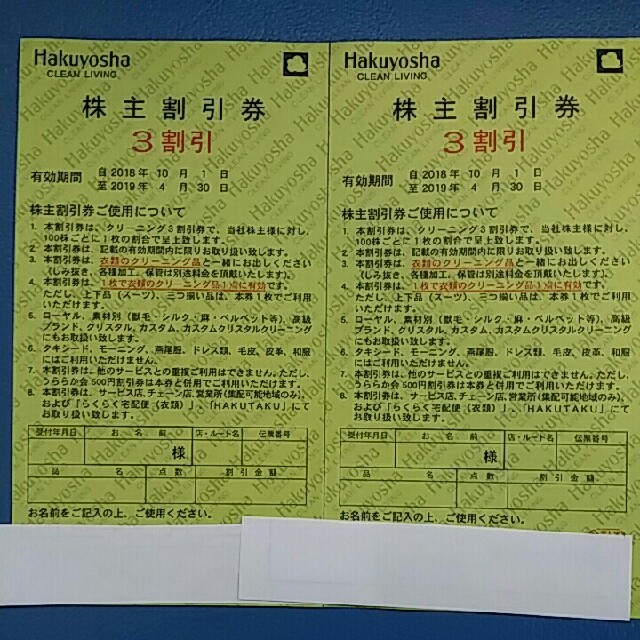 Hakuyosha
CLEAN LIVING
株主割引券
3割引
有効期間
自2018年 10月 1日
至2019年 4月 30日
株主割引券ご使用について
1. 本割引券は、クリーニング3割引券で、当社株主様に対し、
100株ごとに1枚の割合で呈上致します。
2. 本割引券は、記載の有効期間内に限りお取扱い致します。
3. 本割引券は、衣類のクリーニング品と一緒にお出しください
(しみ抜き、各種加工、保管は別途料金を頂戴いたします)。
4. 本割引券は、1枚で衣類のクリーニング品1点に有効です。
ただし、上下品(スーツ)、三つ揃い品は、本券1枚でご利用
いただけます。
5. ローヤル、素材別(獣毛・シルク、麻・ベルベット等)、高級
ブランド、クリスタル、カスタム、カスタムクリスタルクリーニング
にもお取扱い致します。
6. タキシード、モーニング、燕尾服、ドレス類、毛皮、皮革、和服
にはご利用いただけません。
7. 本割引券は、他のサービスとの重複ご利用はできません。ただし、
うららか会500円割引券は本券と併用でご利用いただけます。
8. 本割引券は、サービス店、チェーン店、営業所(集配可能地域のみ)、
および「らくらく宅配便(衣類)」、「HAKUTAKU」にて
お取り扱い致します。
受付年月日 お名前 店・ルート名 伝票番号
様
品名 点数 割引金額
お名前をご記入の上、ご使用ください。
Hakuyosha
CLEAN LIVING
株主割引券
3割引
有効期間
自2018年 10月 1日
至2019年 4月 30日
株主割引券ご使用について
1. 本割引券は、クリーニング3割引券で、当社株主様に対し、
100株ごとに1枚の割合で呈上致します。
2. 本割引券は、記載の有効期間内に限りお取扱い致します。
3. 本割引券は、衣類のクリーニング品と一緒にお出しください
(しみ抜き、各種加工、保管は別途料金を頂戴いたします)。
4. 本割引券は、1枚で衣類のクリーニング品1点に有効です。
ただし、上下品(スーツ)、三つ揃い品は、本券1枚でご利用
いただけます。
5. ローヤル、素材別(獣毛・シルク、麻・ベルベット等)、高級
ブランド、クリスタル、カスタム、カスタムクリスタルクリーニング
にもお取扱い致します。
6. タキシード、モーニング、燕尾服、ドレス類、毛皮、皮革、和服
にはご利用いただけません。
7. 本割引券は、他のサービスとの重複ご利用はできません。ただし、
うららか会500円割引券は本券と併用でご利用いただけます。
8. 本割引券は、サービス店、チェーン店、営業所(集配可能地域のみ)、
および「らくらく宅配便(衣類)」、「HAKUTAKU」にて
お取り扱い致します。
受付年月日 お名前 店・ルート名 伝票番号
様
品名 点数 割引金額
お名前をご記入の上、ご使用ください。